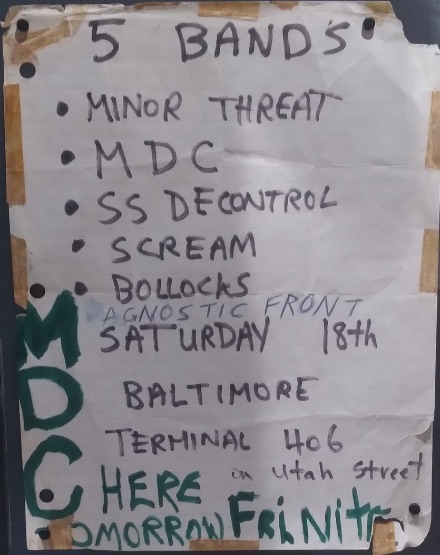 5 BANDS
• MINOR THREAT
• MDC
• SS DECONTROL
• SCREAM
• BOLLOCKS
AGNOSTIC FRONT
SATURDAY 18th
BALTIMORE
TERMINAL 406
in Utah Street
MDC
HERE
TOMORROW FRI NITE